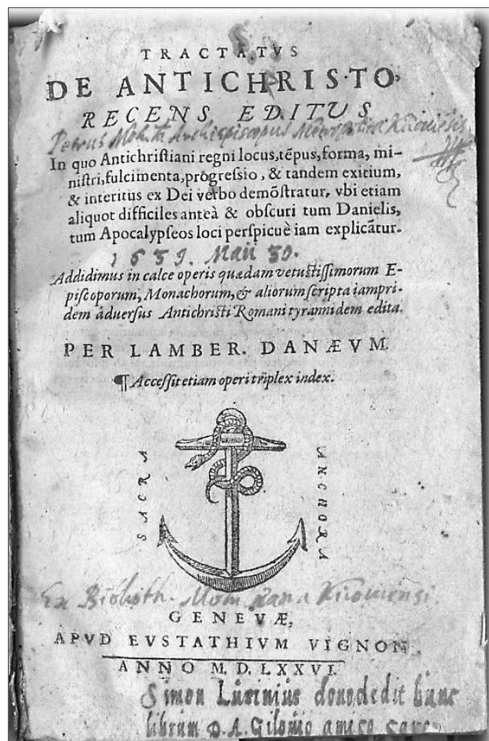 TRACTATVS
DE ANTICHRISTO,
RECENS EDITVS
Petrus Mohila Archiepiscopus Metropolita Kiioviensis
In quo Antichristiani regni locus, tẽpus, forma, mi-
nistri, fulcimenta, progressio, & tandem exitium,
& interitus ex Dei verbo demõstratur, vbi etiam
aliquot difficiles anteà & obscuri tum Danielis,
tum Apocalypseos loci perspicuè iam explicãtur.
1639. Maii 30.
Addidimus in calce operis quædam vetustissimorum E-
piscoporum, Monachorum, & aliorum scripta iampri-
dem aduersus Antichristi Romani tyrannidem edita.
PER LAMBER. DANÆVM.
¶ Accessit etiam operi triplex index.
SACRA
ANCHORA
Ex Biblioth. Kiioviensi
GENEVÆ,
APVD EVSTATHIVM VIGNON
ANNO M.D.LXXVI.
Simon dono dedit hunc
librum D. A. Gilonio amico